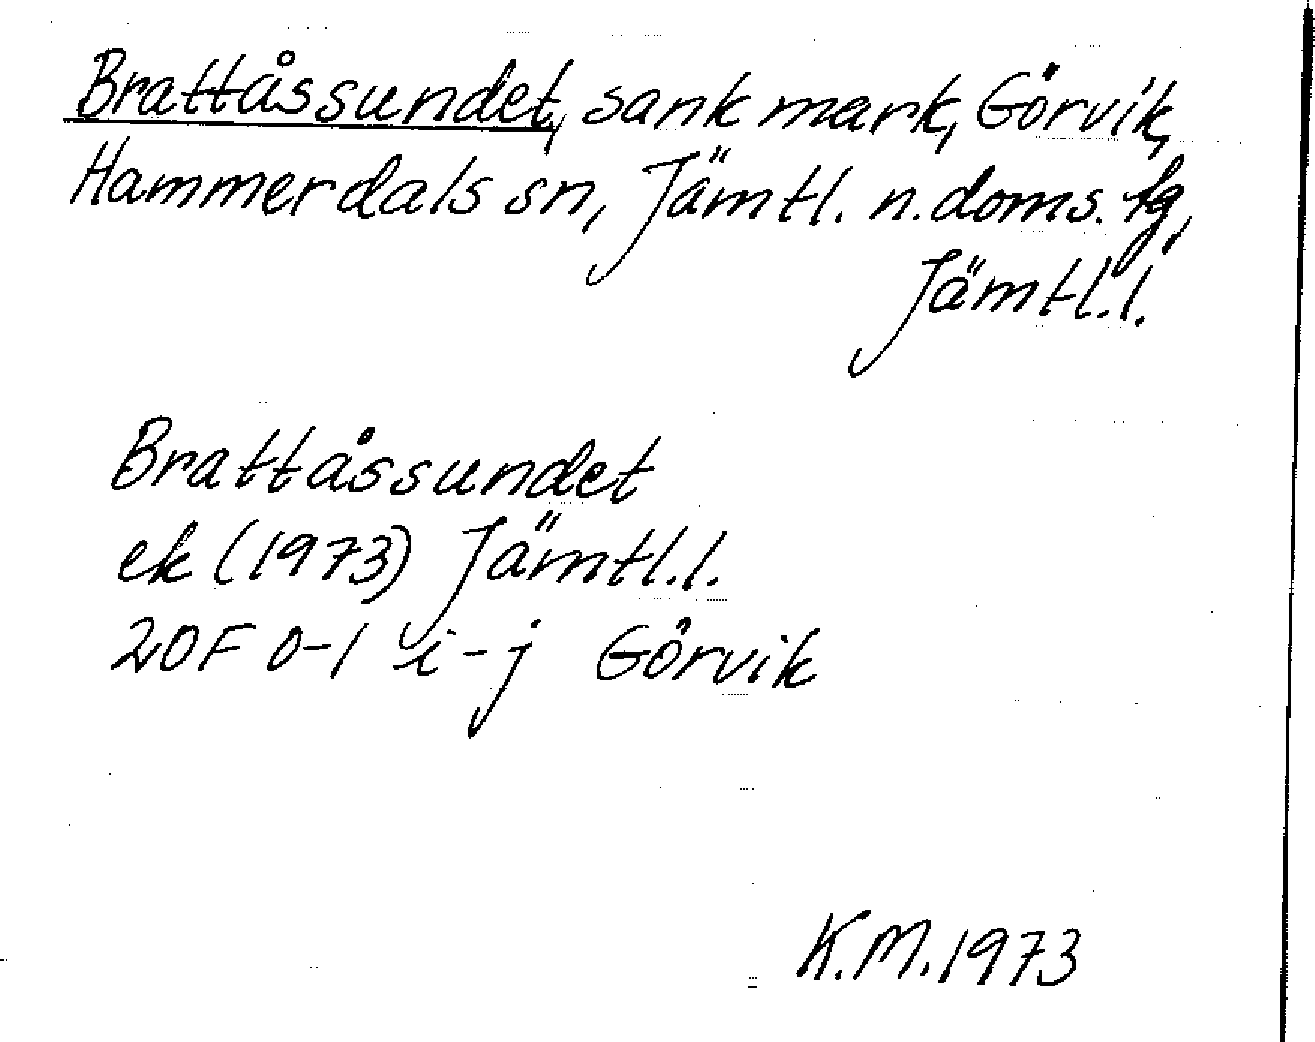 Brattåssundet, sank mark, Görvik,
Hammerdals sn, Jämtl. n. doms. fg,
Jämtl.l.
Brattåssundet
ek (1973) Jämtl.l.
20F 0-1 i-j Görvik
K.M. 1973